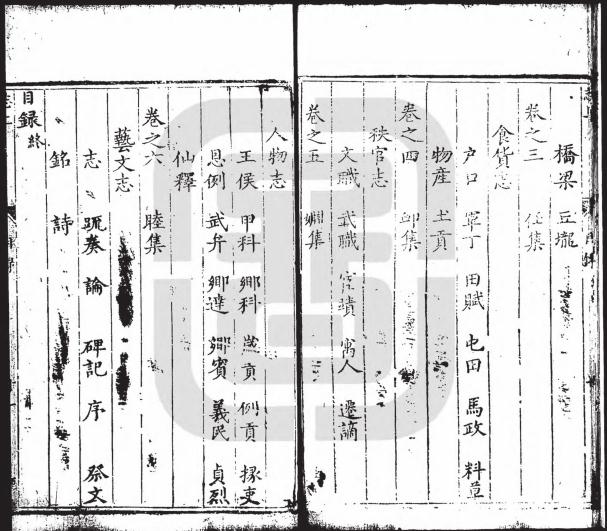 橋梁 丘壠
卷之三 任集
食貨志
戶口 軍丁 田賦 屯田 馬政 料草
物産 土貢
卷之四 卹集
秩官志
文職 武職 宦蹟 寓人 遷謫
卷之五 婣集
人物志
王侯 甲科 鄉科 歲貢 例貢 掾吏
恩例 武弁 鄉達 鄉賓 義民 貞烈
仙釋
卷之六 睦集
藝文志
志 疏奏 論 碑記 序 祭文
銘 詩
目録終